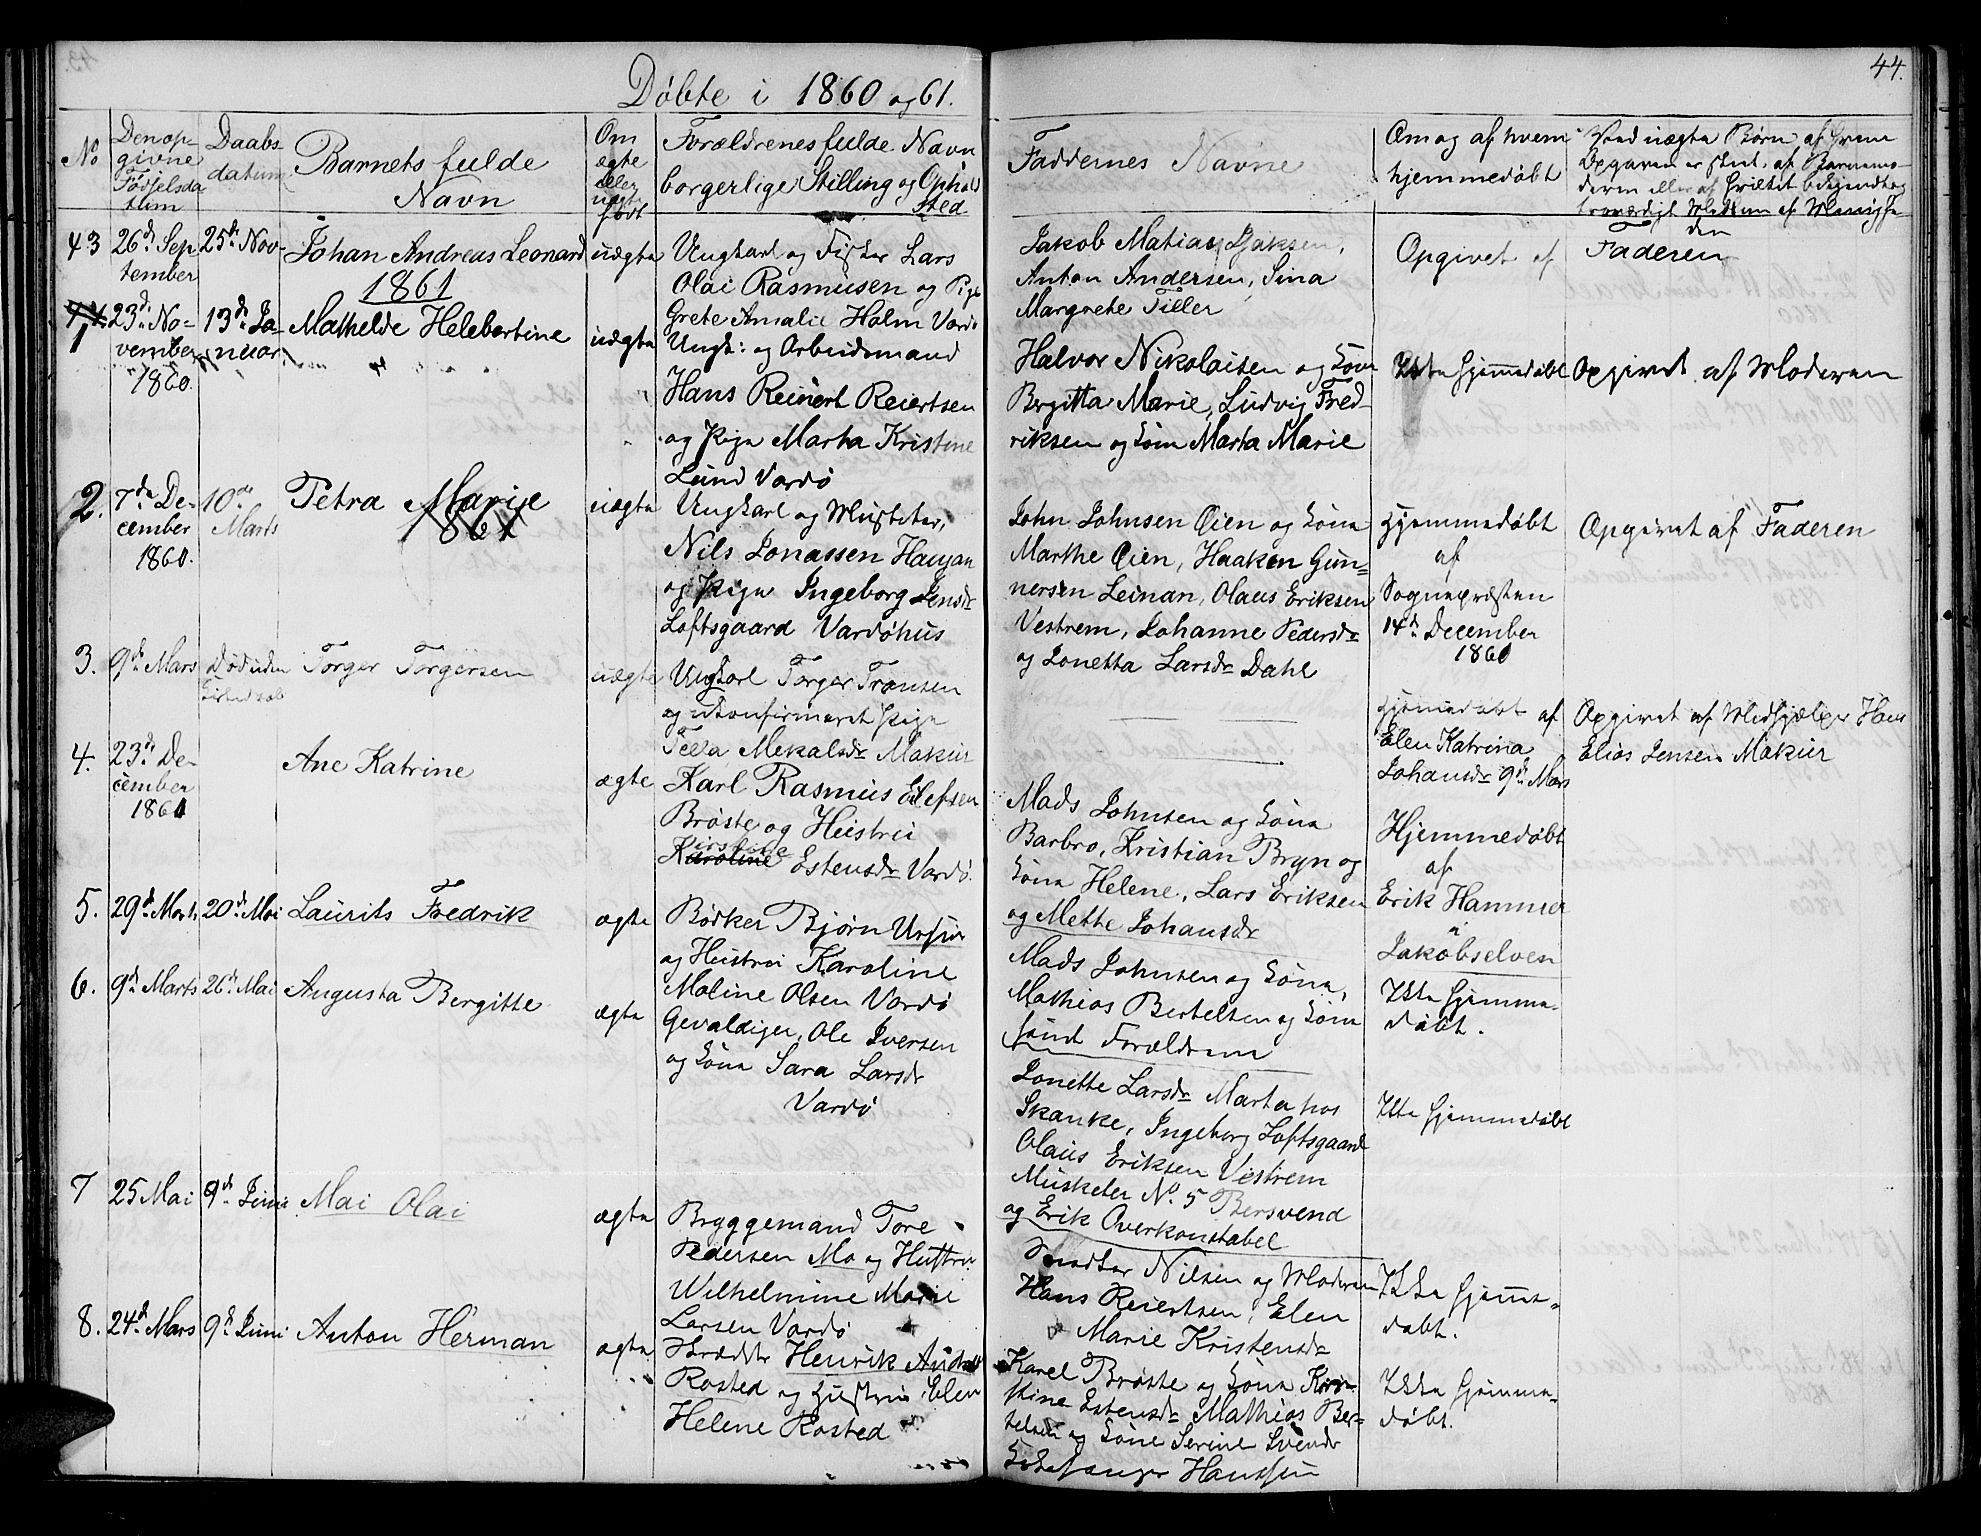 44.
Døbte i 1860 og 61.
No
Den op-
givne
Fødselsda
tum
Daabs
datum
Barnets fulde
Navn
Om
ægte
eller
uægte
født
Forældrenes fulde Navn
borgerlige Stilling og Ophold
sted
Faddernes Navne
Om og af hvem
hjemmedøbt
Ved uægte Børn af
Opgaven er skeet, af Barnemo-
deren eller af
troværdigt af
den
43
26d Sep
tember
25d Nov
Johan Andreas Leonard
uægte
Ungkarl og Fisker Lars
Olai Rasmusen og Pige
Grete Amalie Holm Vardø
Jakob Matias Isaksen,
Anton Andersen, Sina
Margrete Tiller
Opgivet af Faderen
1861
1
23d No-
vember
1860
13d Ja-
nuar
Mathelde Helebertine
uægte
Ungk: og Arbeidsmand
Hans Reinert Reiertsen
og Pige Marta Kristine
Lund Vardø
Halvor Nikolaisen og Kone
Bergitta Marie, Ludvig Fred-
riksen og Kone Marta Marie
Ikke hjemmedøbt
Opgivet af Moderen
2.
7de De-
cember
1860.
10de
Marts
Petra Marie
1861
uægte
Ungkarl og Musketer,
Nils Jonassen Haugan
og Pige Ingeborg Jensdr
Loftsgaard Vardøhus
John Johnsen Øien og Kone
Marthe Øien, Haaken Gun=
nersen Leinan, Olaus Eriksen
Vestrem, Johanne Pedersdr
og Jonetta Larsdr Dahl
Hjemmedøbt
af
Sognepræsten
14d December
1860
Opgivet af Faderen
3.
9d Mars
Død uden
Torger Torgersen
uægte
Ungkarl Torger Transen
og ukonfirmeret Pige
Mekalsdr Makur
Hjemmedøbt af
Elen Katrina
Johansdr 9d Mars
Opgivet af Medhjælper Hans
Elias Jensen Makur
4.
23d De-
cember
1861
Ane Katrine
ægte
Karl Rasmus Elefsen
Brøste og Hustru
Kerstine
Karoline Estensdr Vardø.
Mads Johnsen og Kone
Barbro, Kristian Bryn og
Kone Helene, Lars Eriksen
og Mette Johansdr
Hjemmedøbt
af
Erik Hammer
i
Jakobselven
5.
29d Marts
20d Mai
Laurits Fredrik
ægte
Bødker Bjørn Ursin
og Hustru Karoline
Moline Olsen Vardø
Mads Johnsen og Kone,
Mathias Bertelsen og Kone
samt Forældrene
Ikke hjemme-
døbt.
6.
9d Marts
26d Mai
Augusta Bergitte
ægte
Gevaldiger, Ole Iversen
og Kone Sara Larsdr
Vardø
Jonette Larsdr Marta hos
Skanke, Ingeborg Loftsgaard
Olaus Eriksen Vestrem
Musketer No. 5 Bersvend
og Erik Overkonstabel
Ikke hjemmedøbt
7
25 Mai
9d Juni
Mai Olai
ægte
Bryggemand Tore
Pedersen Mo og Hustru
Wilhelmine Marie
Larsen Vardø
Nilsen og Moderen
Hans Reiertsen, Elen
Marie Kristensdr
Ikke hjemme-
døbt.
8.
24d Mars
9d Juni
Anton Herman
ægte
Henrik Andreas
Rosted og Hustru Elen
Helene Rosted
Karel Brøste og Kone Kir-
stine Estensdr Mathias Ber-
telsen og Kone Serine Svendr
Kirkesanger Hanssen
Ikke hjemme-
døbt.